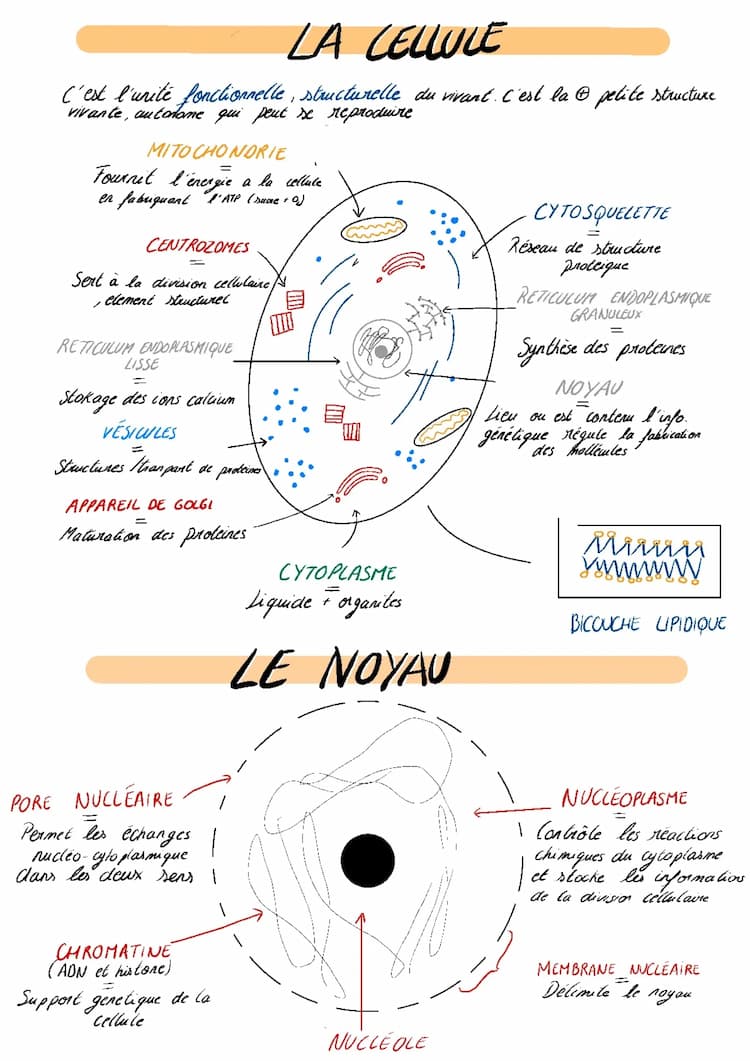 LA CELLULE
C'est l'unité fonctionnelle, structurelle du vivant. C'est la ⊕ petite structure
vivante, autonome qui peut se reproduire
MITOCHONDRIE
=
Fournit l'énergie a la cellule
en fabriquant l'ATP (sucre + O2)
CENTROZOMES
=
Sert à la division cellulaire
, element structurel
RETICULUM ENDOPLASMIQUE
LISSE
=
Stokage des ions calcium
VÉSICULES
=
Structures / transport de protéines
APPAREIL DE GOLGI
=
Maturation des protéines
CYTOPLASME
=
Liquide + organites
CYTOSQUELETTE
=
Réseau de structure
protéique
RETICULUM ENDOPLASMIQUE
GRANULEUX
=
Synthèse des protéines
NOYAU
=
Lieu ou est contenu l'info.
génétique régule la fabrication
des mollécules
BICOUCHE LIPIDIQUE
LE NOYAU
PORE NUCLÉAIRE
=
Permet les échanges
nucléo-cytoplasmique
dans les deux sens
CHROMATINE
(ADN et histone)
=
Support génétique de la
cellule
NUCLÉOLE
NUCLÉOPLASME
=
Contrôle les réactions
chimiques du cytoplasme
et stocke les informations
de la division cellulaire
MEMBRANE NUCLÉAIRE
=
Délimite le noyau